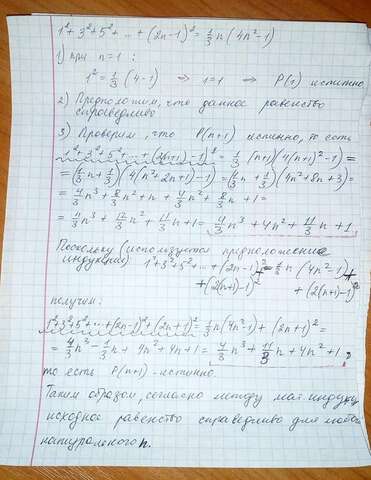 1² + 3² + 5² + ... + (2n-1)² = 1/3 n (4n²-1)
1) при n=1 :
1² = 1/3 (4-1) => 1=1 => P(1) истинно
2) Предположим, что данное равенство
справедливо
3) Проверим, что P(n+1) истинно, то есть
1²+3²+5²+...+(2(n+1)-1)² = 1/3 (n+1)(4(n+1)²-1) =
= (1/3 n + 1/3)(4(n²+2n+1)-1) = (1/3 n + 1/3)(4n²+8n+3) =
= 4/3 n³ + 8/3 n² + n + 4/3 n² + 8/3 n + 1 =
= 4/3 n³ + 12/3 n² + 11/3 n + 1 = 4/3 n³ + 4n² + 11/3 n + 1
Поскольку (используется предположение
индукции) 1²+3²+5²+...+(2n-1)²+ = 1/3 n (4n²-1)+
+(2(n+1)-1)² + (2(n+1)-1)²
получим:
1²+3²+5²+...+(2n-1)²+(2n+1)² = 1/3 n(4n²-1) + (2n+1)² =
= 4/3 n³ - 1/3 n + 4n² + 4n + 1 = 4/3 n³ + 11/3 n + 4n² + 1 ,
то есть P(n+1) - истинно.
Таким образом, согласно методу мат. индукц
исходное равенство справедливо для любого
натурального n.